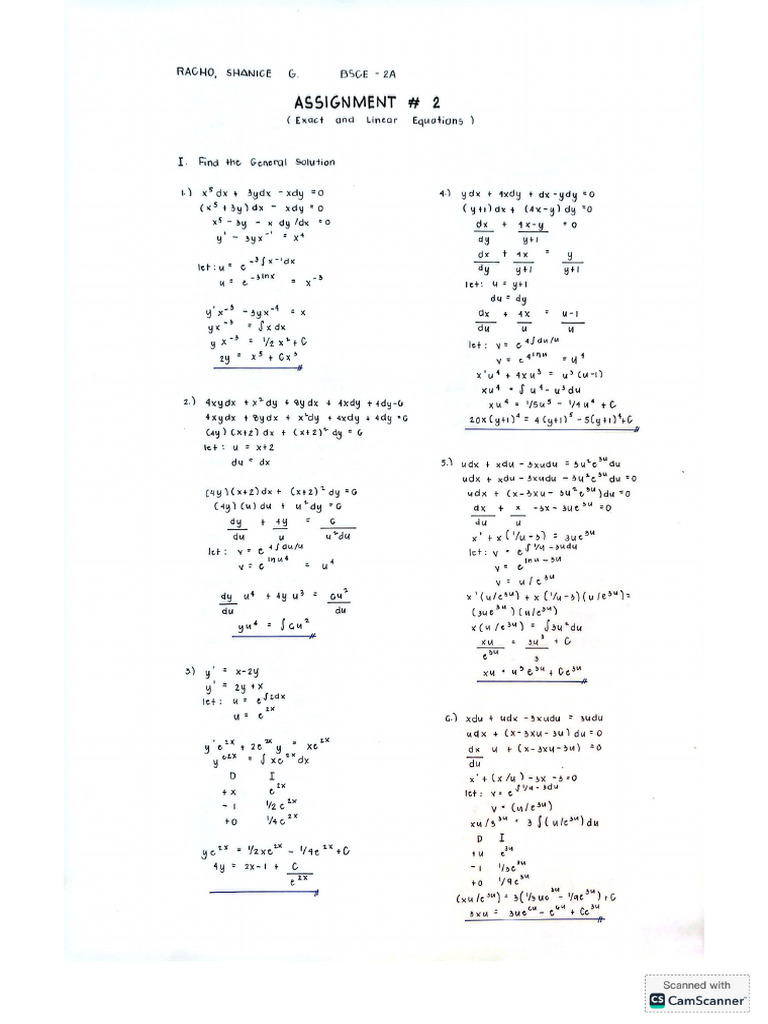 RACHO, SHANICE G. BSCE - 2A
ASSIGNMENT # 2
( Exact and Linear Equations )
I. Find the General Solution
1.) x⁵dx + 3ydx - xdy = 0
(x⁵ + 3y) dx - xdy = 0
x⁵ - 3y - x dy/dx = 0
y' - 3yx⁻¹ = x⁴
let: u = e^-3∫x⁻¹dx
u = e^-3lnx = x⁻³
y'x⁻³ - 3yx⁻⁴ = x
yx⁻³ = ∫xdx
yx⁻³ = 1/2 x² + C
2y = x⁵ + Cx³
2.) 4xydx + x²dy + 8ydx + 4xdy + 4dy = 6
4xydx + 8ydx + x²dy + 4xdy + 4dy = 6
(4y)(x+2) dx + (x+2)² dy = 6
let: u = x+2
du = dx
(4y)(x+2)dx + (x+2)² dy = 6
(4y)(u) du + u² dy = 6
dy/du + 4y/u = 6/u²du
let: v = e^4∫du/u
v = e^lnu⁴ = u⁴
dy/du u⁴ + 4y u³ = 6u²/du
yu⁴ = ∫6u²
3.) y' = x-2y
y' = 2y + x
let: u = e^∫2dx
u = e^2x
y'e^2x + 2e^2x y = xe^2x
ye^2x = ∫xe^2x dx
D I
+x e^2x
-1 1/2e^2x
+0 1/4e^2x
ye^2x = 1/2xe^2x - 1/4e^2x + C
4y = 2x-1 + C/e^2x
4.) ydx + 4xdy + dx - ydy = 0
(y+1)dx + (4x-y) dy = 0
dx/dy + 4x-y/y+1 = 0
dx/dy + 4x/y+1 = y/y+1
let: u = y+1
du = dy
dx/du + 4x/u = u-1/u
let: v = e^4∫du/u
v = e^4lnu = u⁴
x'u⁴ + 4xu³ = u³(u-1)
xu⁴ = ∫u⁴-u³du
xu⁴ = 1/5u⁵ - 1/4u⁴ + C
20x(y+1)⁴ = 4(y+1)⁵ - 5(y+1)⁴+C
5.) udx + xdu - 3xudu = 3u²e^3u du
udx + xdu - 3xudu - 3u²e^3u du = 0
udx + (x-3xu - 3u²e^3u)du = 0
dx/du + x/u - 3x - 3ue^3u = 0
x' + x(1/u - 3) = 3ue^3u
let: v = e^∫1/u - 3udu
v = e^lnu - 3u
v = u/e^3u
x'(u/e^3u) + x(1/u-3)(u/e^3u) =
(3ue^3u)(u/e^3u)
x(u/e^3u) = ∫3u²du
xu/e^3u = 3u³/3 + C
xu = u³e^3u + Ce^3u
6.) xdu + udx - 3xudu = 3udu
udx + (x-3xu-3u) du = 0
dx/du u + (x-3xu-3u) = 0
x' + (x/u) - 3x - 3 = 0
let: v = e^∫1/u - 3du
v = (u/e^3u)
xu/3^3u = 3∫(u/e^3u)du
D I
+u e^3u
-1 1/3e^3u
+0 1/9e^3u
(xu/e^3u) = 3(1/3ue^3u - 1/9e^3u) + C
3xu = 3ue^6u - e^6u + Ce^3u
Scanned with
CS CamScanner